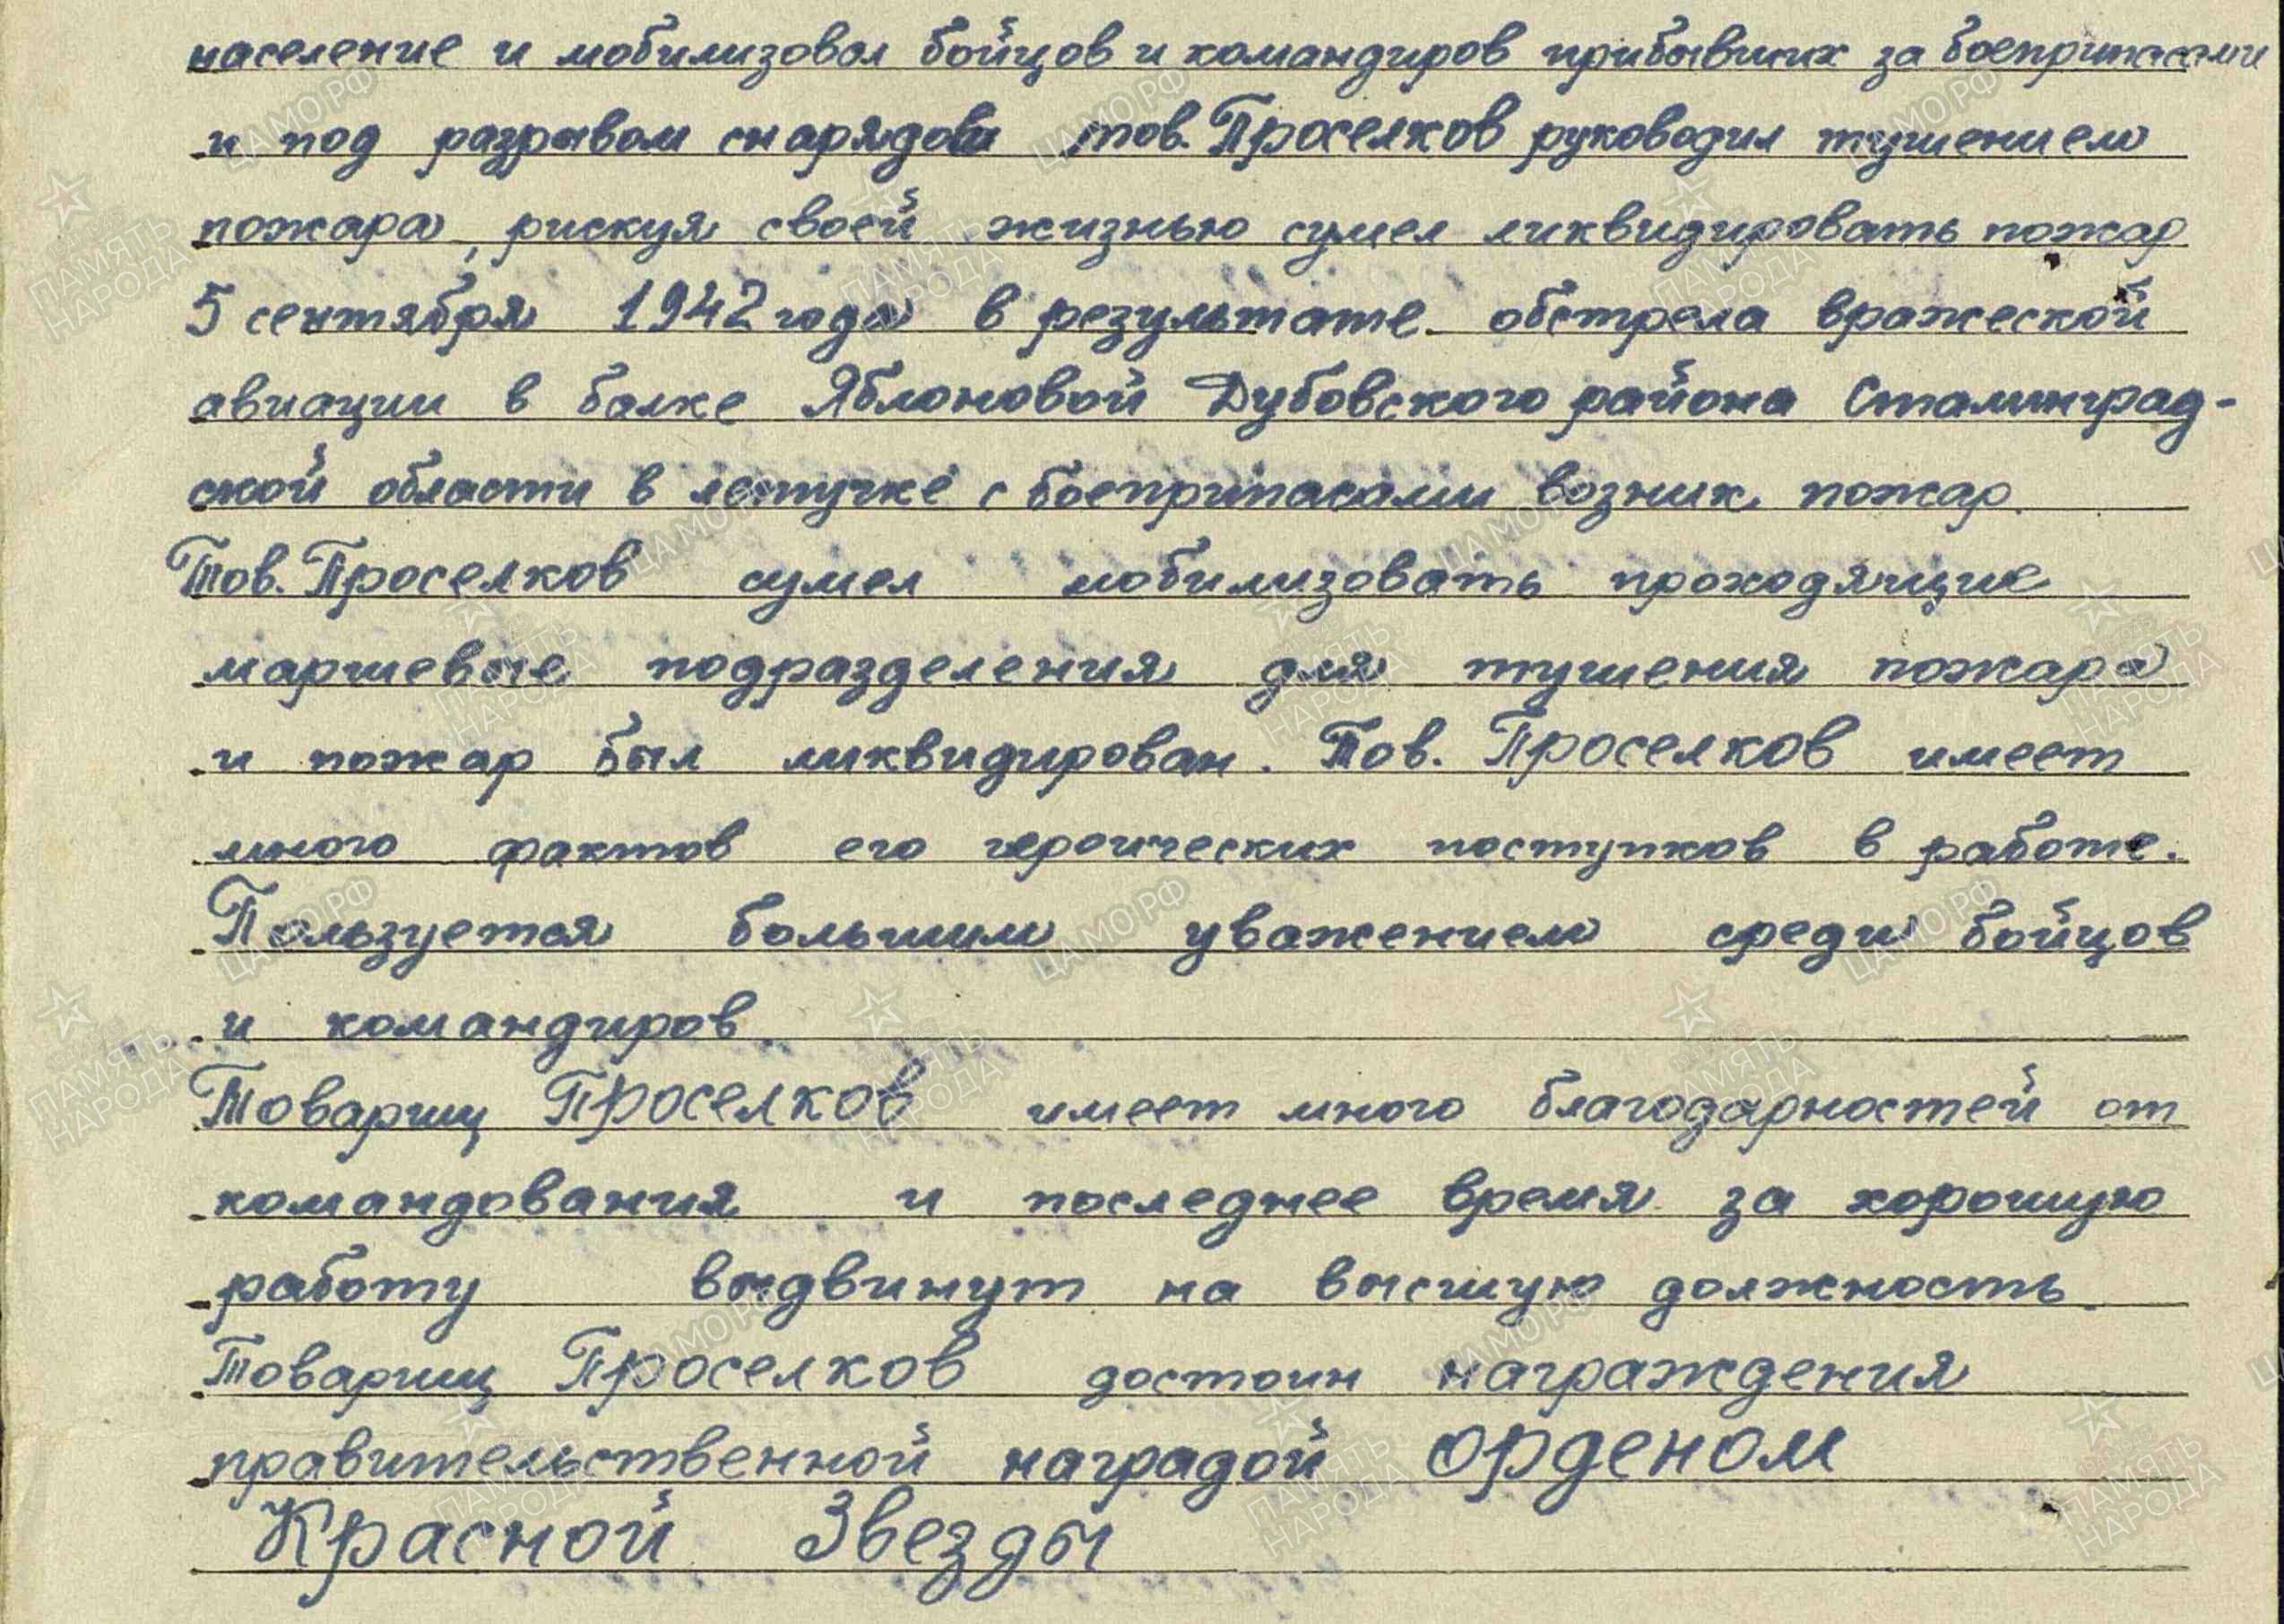 население и мобилизовал бойцов и командиров прибывших за боеприпасами
и под разрывом снарядов тов. Проселков руководил тушением
пожара, рискуя своей жизнью сумел ликвидировать пожар
5 сентября 1942 года в результате обстрела вражеской
авиации в балке Яблоновой Дубовского района Сталинград-
ской области в летучке с боеприпасами возник пожар.
Тов. Проселков сумел мобилизовать проходящие
маршевые подразделения для тушения пожара
и пожар был ликвидирован. Тов. Проселков имеет
много фактов его героических поступков в работе.
Пользуется большим уважением среди бойцов
и командиров
Товарищ Проселков имеет много благодарностей от
командования и последнее время за хорошую
работу выдвинут на высшую должность.
Товарищ Проселков достоин награждения
правительственной наградой орденом
Красной Звезды
ПАМЯТЬ НАРОДА
ЦАМО РФ